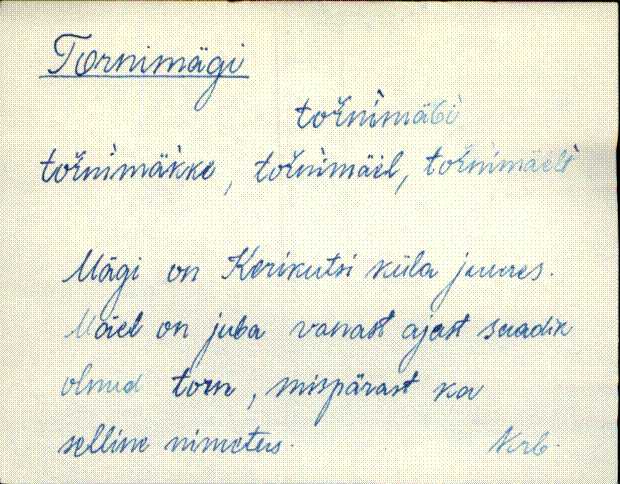 Tornimägi
tořnìmäG̀ì
tořnìmäkke, tořnìmäel, tořnìmäelt
Mägi on Kerikutsi küla juures.
Mäel on juba vanast ajast saadik
olnud torn, mispärast ka
selline nimetus.
Nrb.